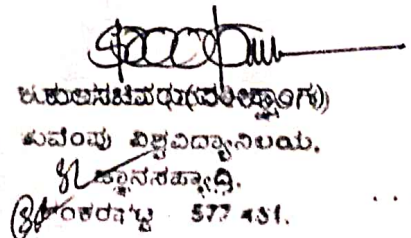 ಕುಲಸಚಿವರು(ಪರೀಕ್ಷಾಂಗ)
ಕುವೆಂಪು ವಿಶ್ವವಿದ್ಯಾನಿಲಯ.
ಜ್ಞಾನಸಹ್ಯಾದ್ರಿ.
ಶಂಕರಘಟ್ಟ 577 451.